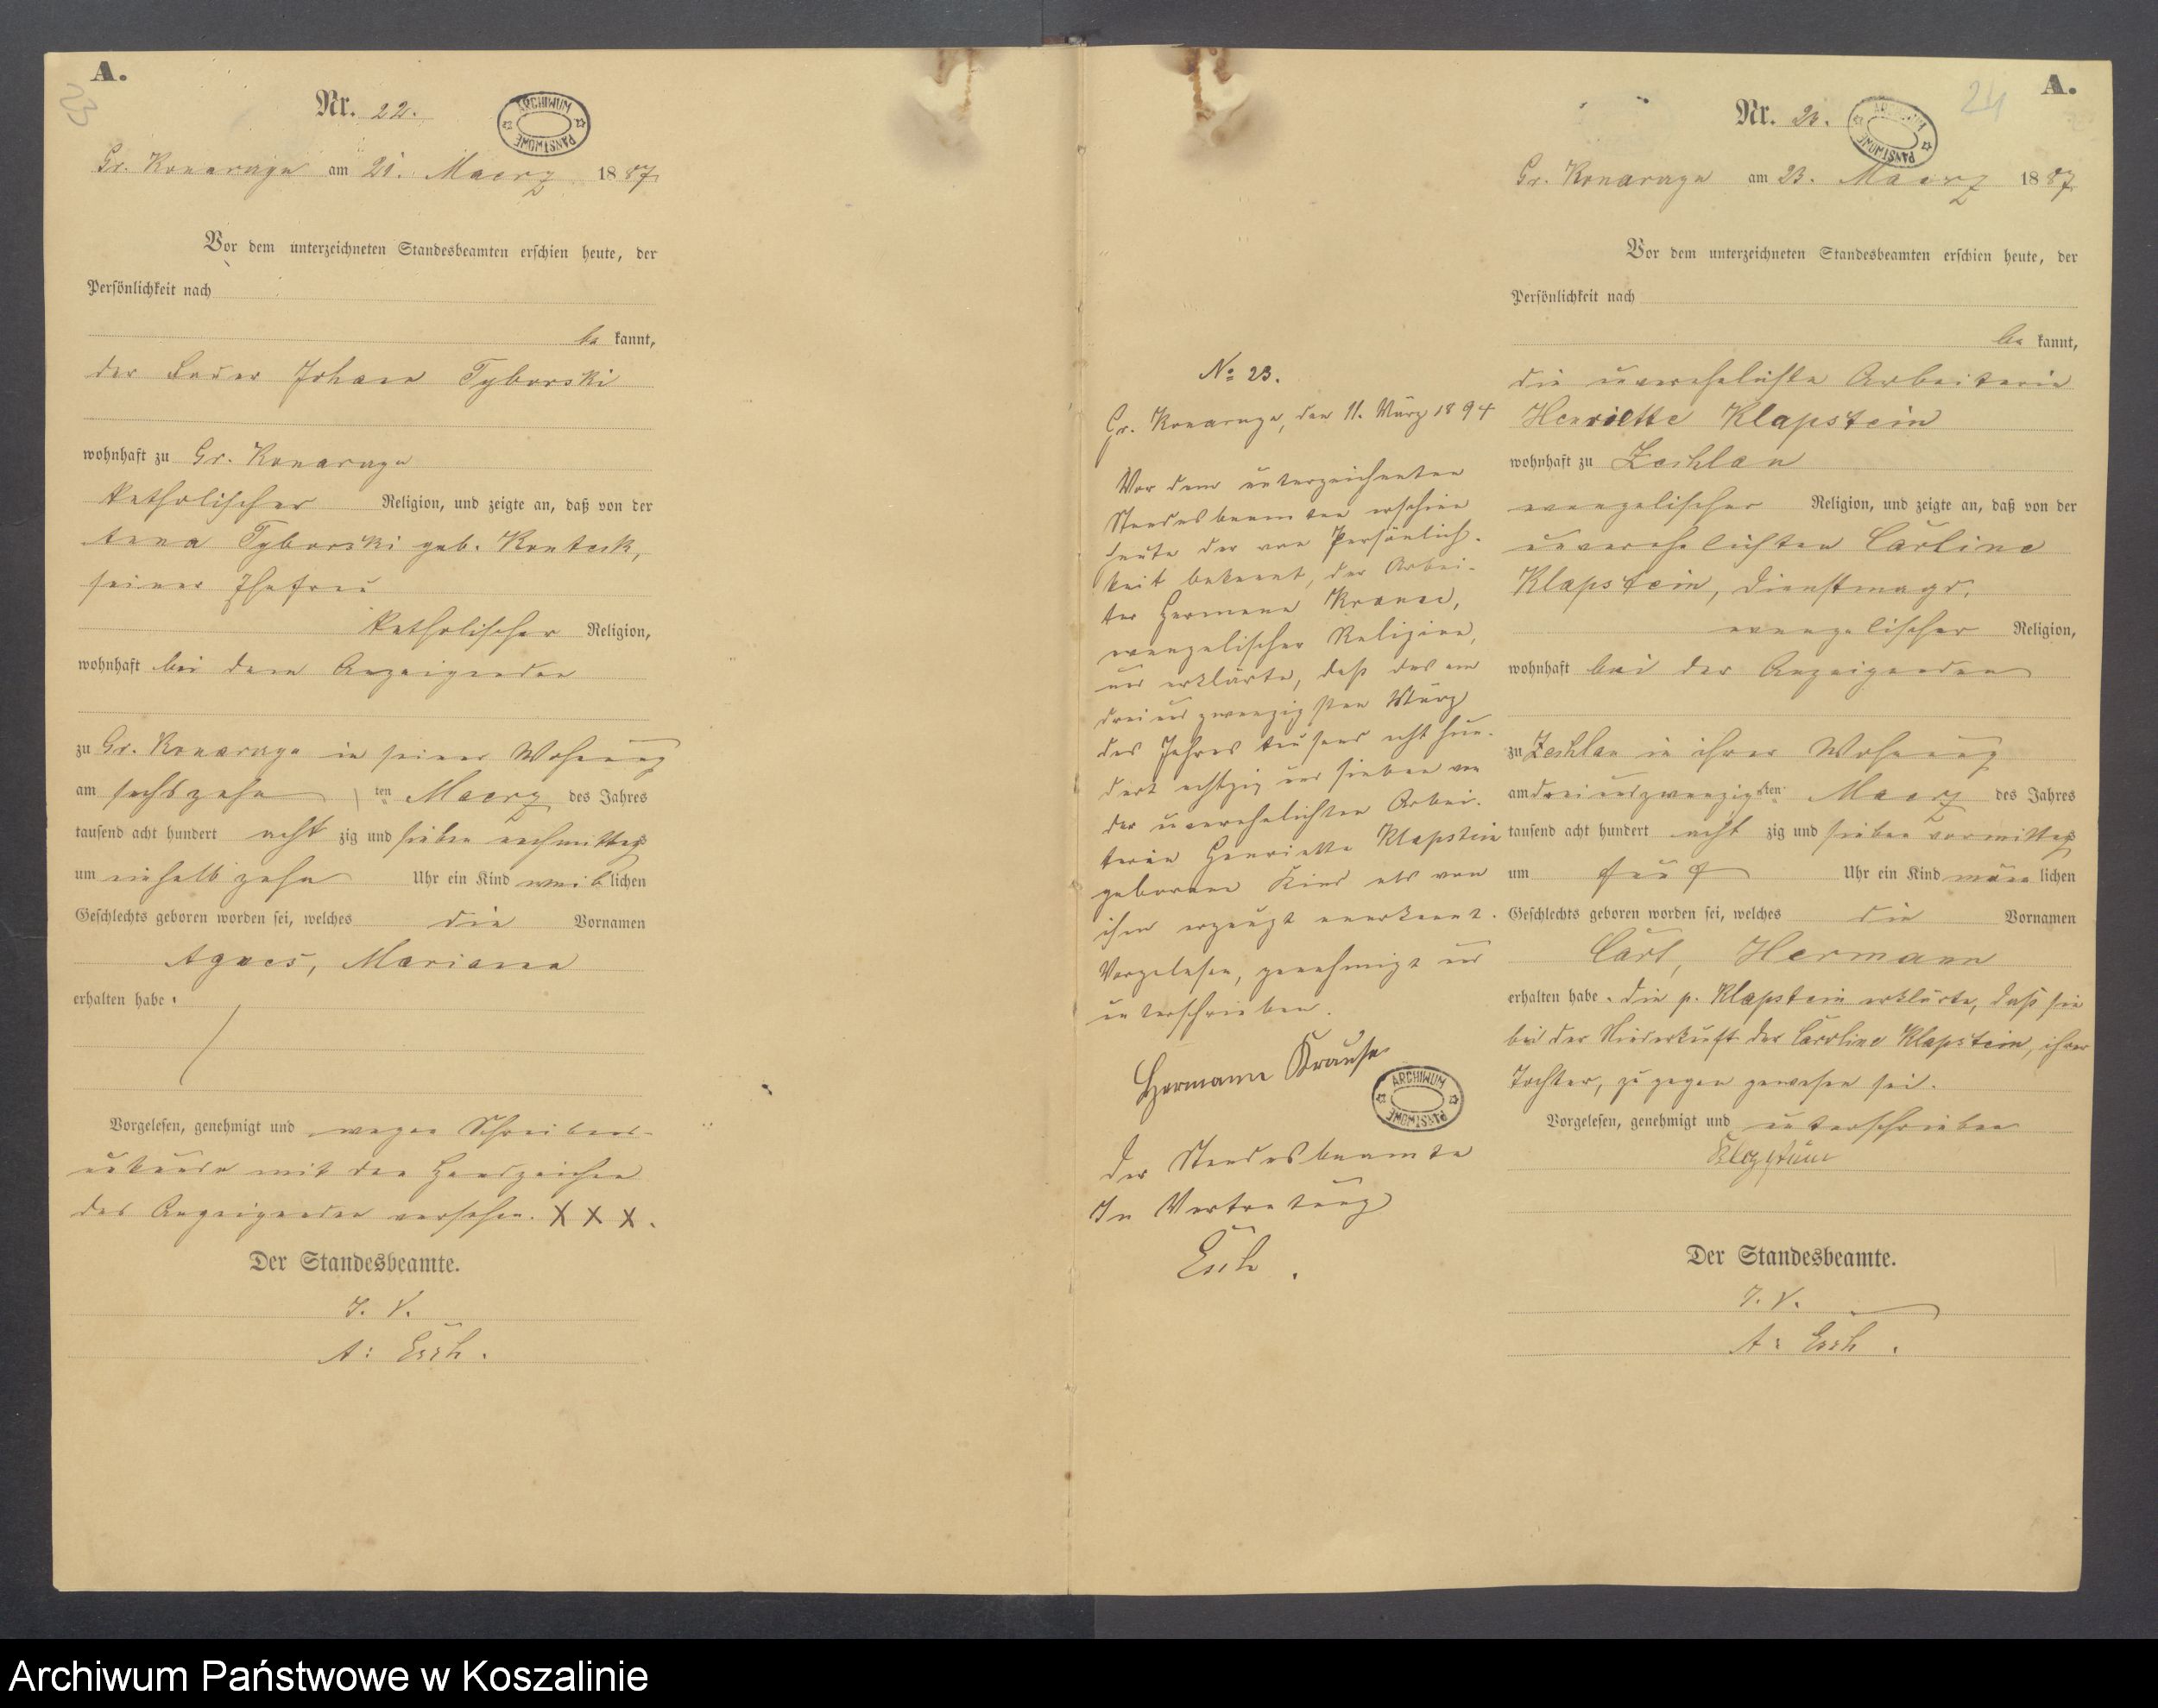 A.
23
Nr. 22.
ARCHIWUM PAŃSTWOWE
Gr. Konarzyn am 21. Maerz 1887
Vor dem unterzeichneten Standesbeamten erschien heute, der
Persönlichkeit nach
be kannt,
der Johann Tyborski
wohnhaft zu Gr. Konarzyn
katholischer Religion, und zeigte an, daß von der
Anna Tyborski geb.
seiner Ehefrau
katholischer Religion,
wohnhaft bei dem Anzeigenden
zu Gr. Konarzyn in seiner Wohnung
am sechszehn ten Maerz des Jahres
tausend acht hundert acht zig und sieben nachmittags
um einhalb zehn Uhr ein Kind weib lichen
Geschlechts geboren worden sei, welches die Vornamen
Agnes, Mariana
erhalten habe.
Vorgelesen, genehmigt und wegen Schreibens-
unkunde mit den Handzeichen
des Anzeigenden versehen. X X X.
Der Standesbeamte.
I. V.
A: Esch.
No 23.
Gr. Konarzyn, den 11. März 1894
Vor dem unterzeichneten
Standesbeamten erschien
heute der von Persönlich-
keit bekannt, der Arbei-
ter Hermann Krause,
evangelischer Religion,
und erklärte, daß das am
dreiundzwanzigsten März
des Jahres tausend acht hun-
dert achtzig und sieben von
der unverehelichten Arbei-
terin Henriette Klapstein
geborene Kind als von
ihm erzeugt anerkennt.
Vorgelesen, genehmigt und
unterschrieben.
Hermann Krause
ARCHIWUM PAŃSTWOWE
Der Standesbeamte
In Vertretung
Esch.
A.
24
Nr. 23.
ARCHIWUM PAŃSTWOWE
Gr. Konarzyn am 23. Maerz 1887
Vor dem unterzeichneten Standesbeamten erschien heute, der
Persönlichkeit nach
be kannt,
die unverehelichte Arbeiterin
Henriette Klapstein
wohnhaft zu Zechlau
evangelischer Religion, und zeigte an, daß von der
unverehelichten Carline
Klapstein, Dienstmagd,
evangelischer Religion,
wohnhaft bei der Anzeigenden
zu Zechlau in ihrer Wohnung
am dreiundzwanzigsten Maerz des Jahres
tausend acht hundert acht zig und sieben vormittags
um fünf Uhr ein Kind männ lichen
Geschlechts geboren worden sei, welches die Vornamen
Carl, Hermann
erhalten habe. Die p. Klapstein erklärte, daß sie
bei der Niederkunft der Carline Klapstein, ihrer
Tochter, zugegen gewesen sei.
Vorgelesen, genehmigt und unterschrieben
Klapstein
Der Standesbeamte.
I. V.
A: Esch.
Archiwum Państwowe w Koszalinie